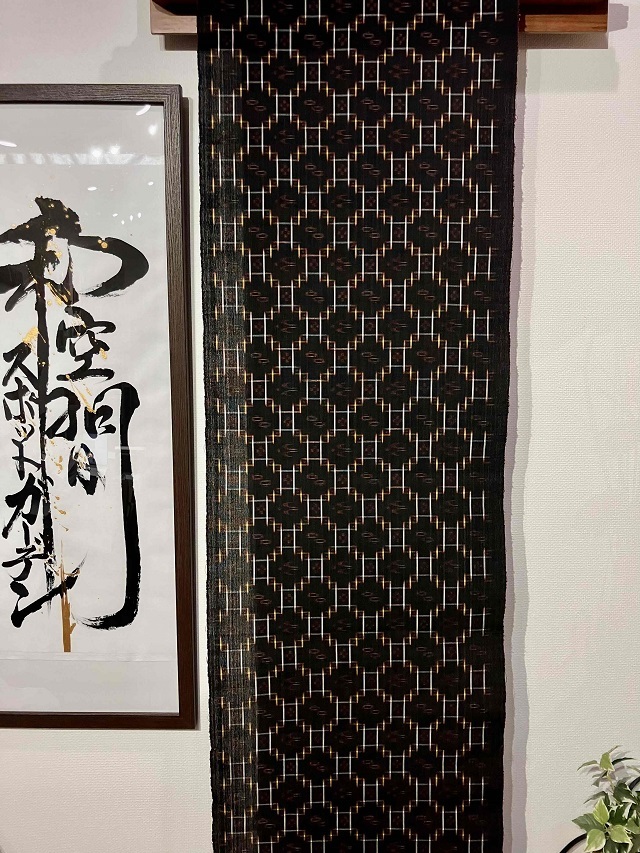 わ空間
スポットガーデン